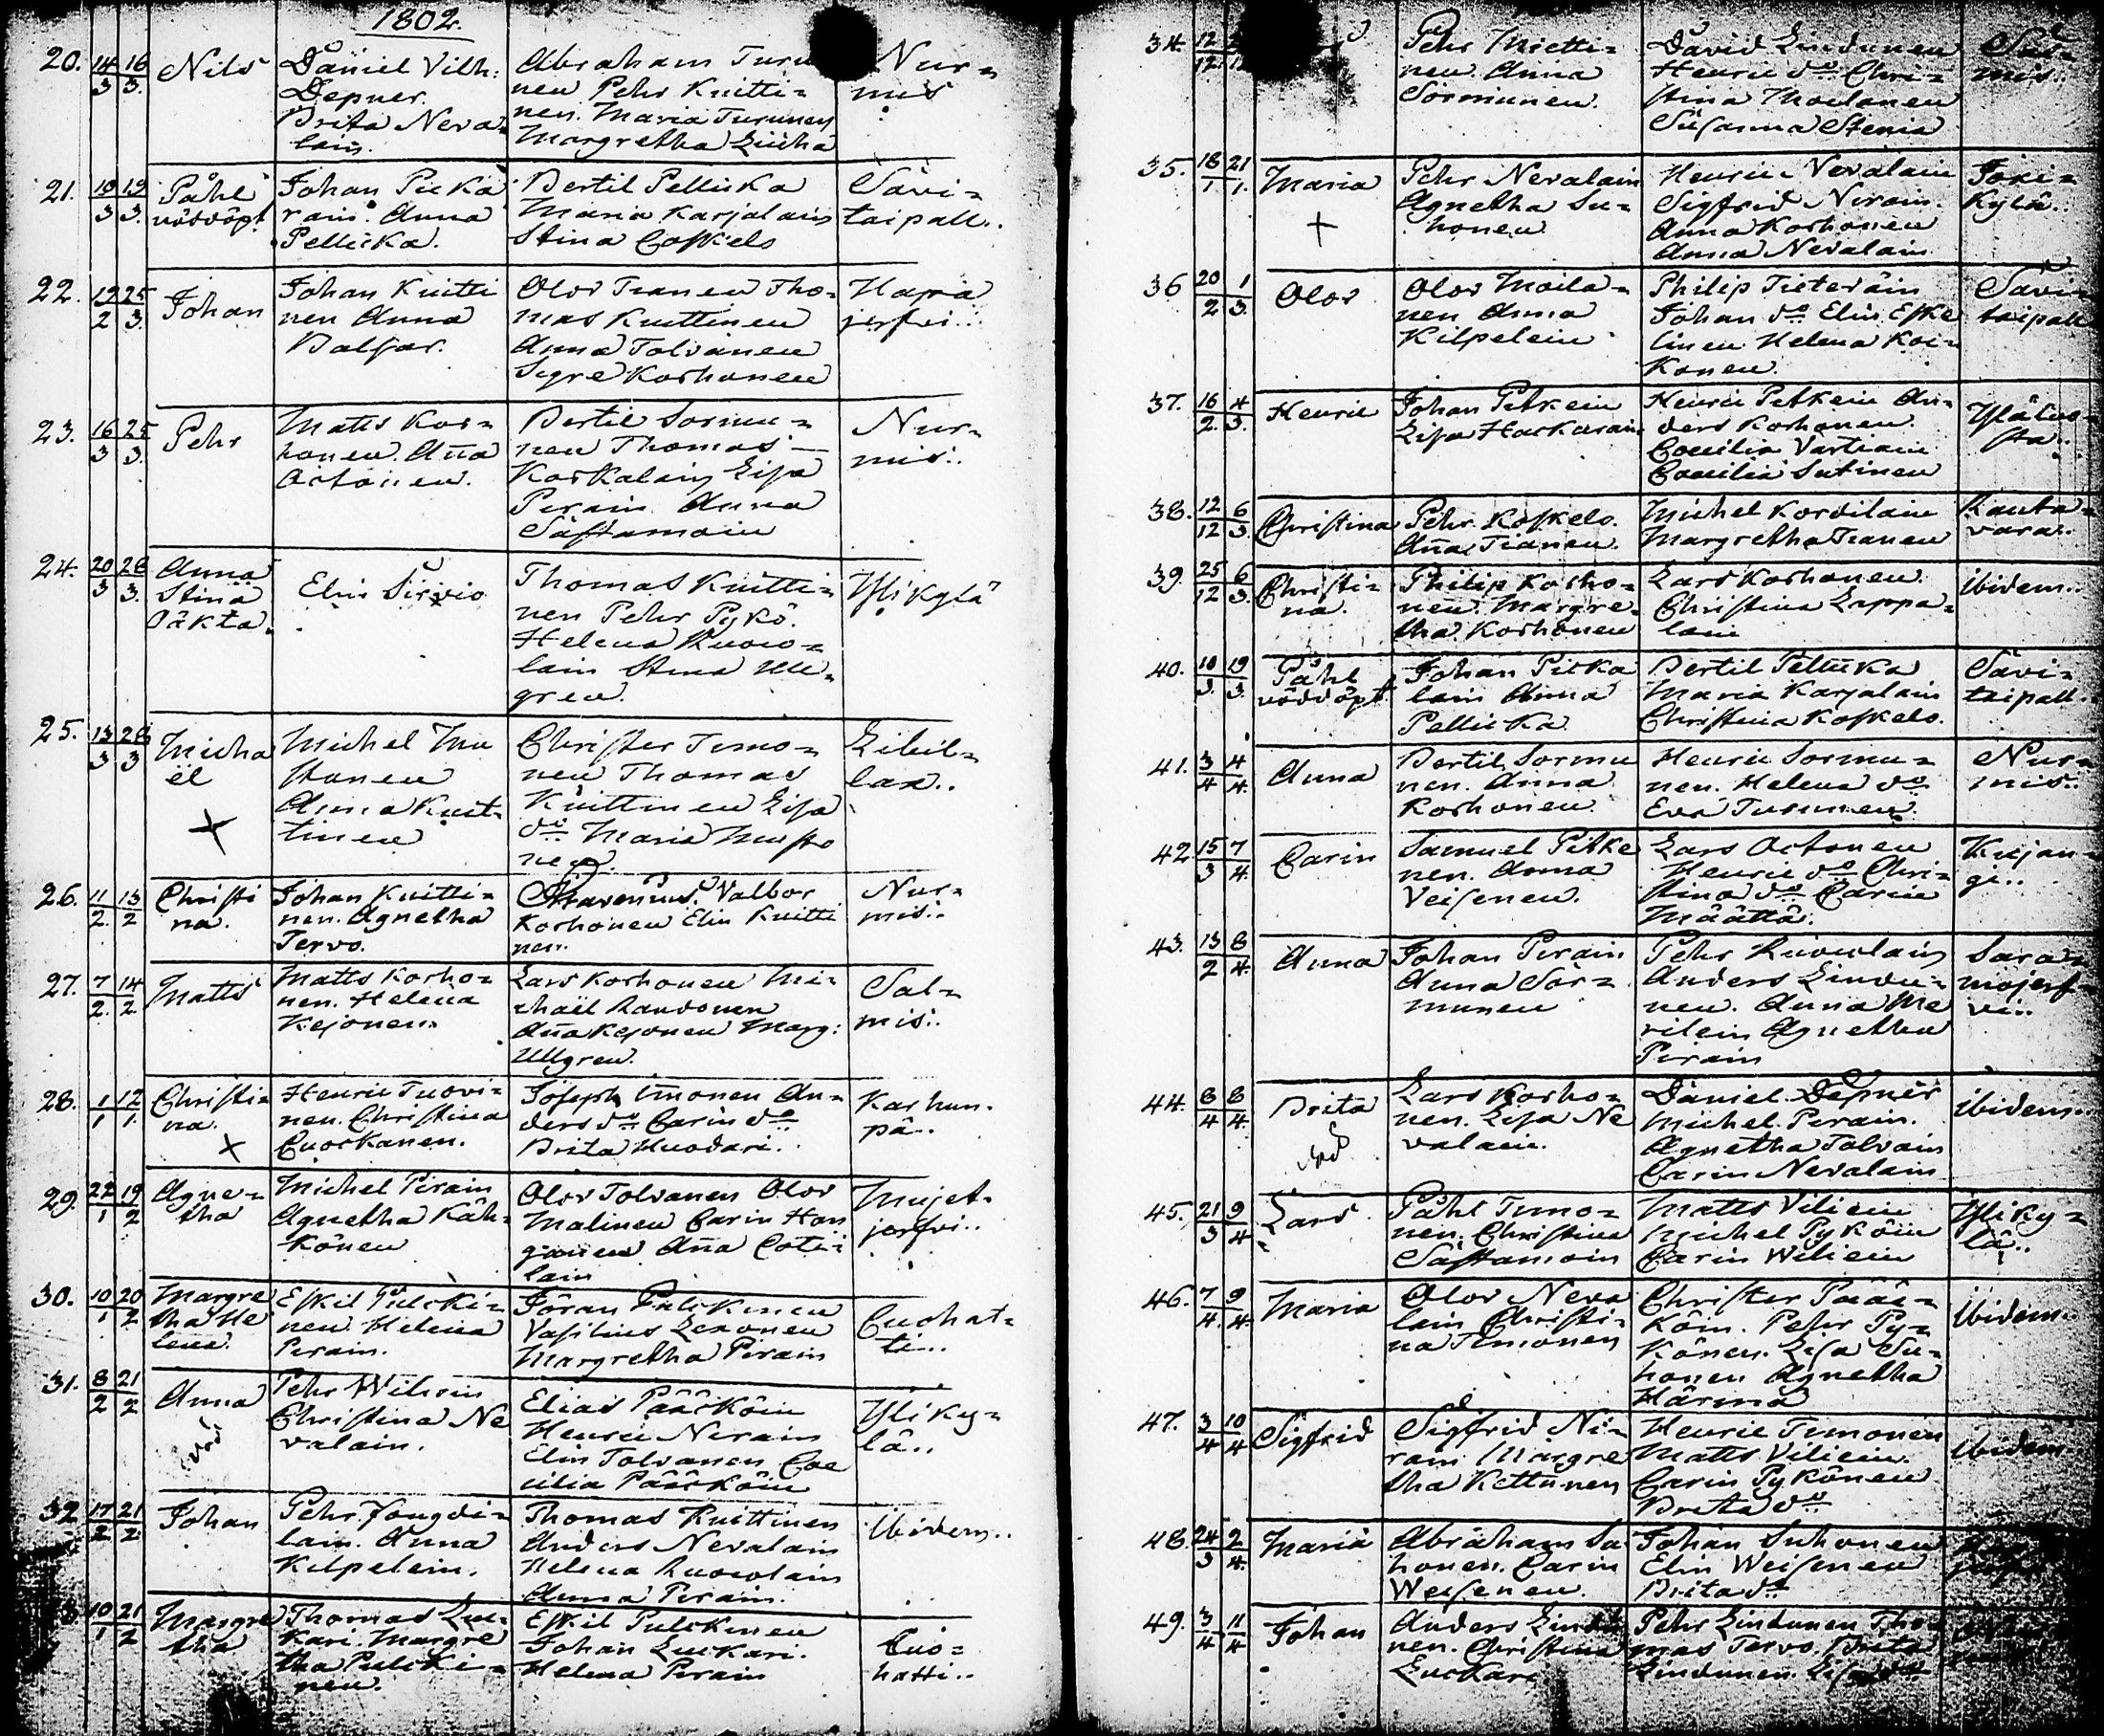 1802.
20. 14/3 16/3. Nils Daniel Vilh: Depner. Brita Neva= lain. Abraham Turu nen Pehr Knitti= nen. Maria Turunen Margretha Nur= mis
21. 10/3 19/3. Påhl nöddöpt Johan Picka rain. Anna Pellicka. Bertil Pellicka Maria Karjalain Stina Coskelo Savi= taipall..
22. 19/2 25/3. Johan Johan Knitti nen Anna Balsar. Olov Tianen Tho= mas Knittinen Anna Tolvanen Sigre Korhonen Hapa jerfvi..
23. 16/3 25/3. Pehr Matts Kor= honen. Aña Actoinen. Bertil Sormu= nen Thomas Karkalain Lisa Perain Anna Säfsamoin Nur= mis..
24. 20/3 28/3. Anna Stina Oäkta. Elin Sirvio Thomas Knitti= nen Pehr Pykö. Helena Ruovo= lain Stina Ull= gren. Ylikylä
25. 13/3 28/3 Micha el + Michel Mu stonen Anna Knit= tinen Christer Timo= nen Thomas Knittinen Lisa do Maria Musto nen. Libil= lax..
26. 11/2. 13/2 Christi na. Johan Knitti= nen. Agnetha Tervo. Valbor Korhonen Elin Knitti nen. Nur= mis..
27. 7/2. 14/2. Matts Matts Korho= nen. Helena Kejonen. Lars Korhonen Mi= chaël Randonen Aña Kejonen Marg: Ullgren. Sal= mis..
28. 1/1 12/1. Christi= na. x Henric Tuovi= nen. Christina Cuockanen. Joseph Imonen An= ders do Carin do Brita Huovari. Karhun= pä..
29. 22/1 19/2 Agne= tha Michel Pirain Agnetha Käh= könen Olov Tolvanen Olov Malinen Carin Hon ganen Aña Coti= lain Mujet= jerfvi..
30. 10/1 20/2 Margre tha He lena. Eskil Pulcki= nen. Helena Perain. Jöran Pulckinen Vasilius Lexonen Margretha Perain Cuohat= ti..
31. 8/2 21/2 Anna död Pehr Wilisin Christina Ne valain. Elias Pääsköin Henric Nerain Elin Tolvanen Coe cilia Pääsköin Yliky= lä..
32 17/2 21/2 Johan Pehr Jougdi= lain. Anna Kilpelein. Thomas Knittinen Anders Nevalain Helena Ruovolain Anna Perain. Ibidem..
10/1 21/2 Margre tha Thomas Luc= kari. Margre tha Pulcki= nen. Eskil Pulckinen Johan Luckari. Helena Perain Cuo= hatti..
34. 12/12. Pehr Mietti= nen. Anna Sormunen. David Lindunen Henric do Chri= stina Moilanen Susanna Stenia
35. 18/1 21/1. Maria + Pehr Nevalain Agnetha Su= honen Henric Nevalain Sigfrid Nirain. Anna Korhonen Anna Nevalain Joki= kylä..
36 20/2 1/3. Olov Olov Moila= nen Anna Kilpelein Philip Tieteräin Johan do Elin Eske linen Helena Koi= konen. Savi= taipall
37. 16/2. 4/3. Henric Johan Petkein Lisa Harkarain Henric Petkein An= ders Korhonen. Coecilia Vartiain Coecilia Sutinen
38. 12/12 6/3. Christina Pehr Koskelo. Aña Tianen. Michel Kordilain Margretha Tianen Rauta= vara..
39. 25/12 6/3. Christi= na. Philip Korho= nen. Margre= tha Korhonen Lars Korhonen Christina Lappa= lain Ibidem..
40. 10/3. 19/3. Påhl nöddöpt Johan Picka lain Anna Pellicka. Bertil Pellicka Maria Karjalain Christina Koskelo. Savi= taipall..
41. 3/4 4/4. Anna Bertil Sormu nen. Anna Korhonen. Henric Sormu= nen. Helena do Eva Turunen. Nur= mis..
42. 15/3 7/4. Carin Samuel Pitke nen. Anna Veisenen. Lars Actonen Henric do Chri= stina do Carin Määttä. Kujan= gi..
43. 13/2 8/4. Anna Johan Perain Anna Sor= munen Pehr Ruovolain Anders Lindu= nen. Anna Me rilein Agnetha Perain Sara= mojerf= vi..
44. 8/4 8/4 Brita död Lars Korho= nen. Lisa Ne valain. Daniel Depner Michel Perain. Agnetha Tolvain Carin Nevalain Ibidem..
45. 21/3 9/4 Lars Påhl Timo= nen. Christina Säfsamoin Matts Vilicin Michel Pyköin Carin Wilicin Yliky= lä..
46. 7/4. 9/4. Maria Olov Neva lain Christi= na Timonen Christer Pääs= köin. Pehr Py= könen. Lisa Su= honen Agnetha Härmä Ibidem..
47. 3/4 10/4 Sigfrid Sigfrid Ni= rain Margre tha Kettunen Henric Timonen Matts Vilicin. Carin Pykönen Brita do Ibidem
48. 24/3 2/4. Maria Abraham Su honen. Carin Weisenen. Johan Suhonen Elin Weisenen Brita do
49. 3/4 11/4 Johan Anders Lindu nen. Christina Luckari Pehr Lindunen Tho= mas Tervo. Brita Lindunen. Lisa do